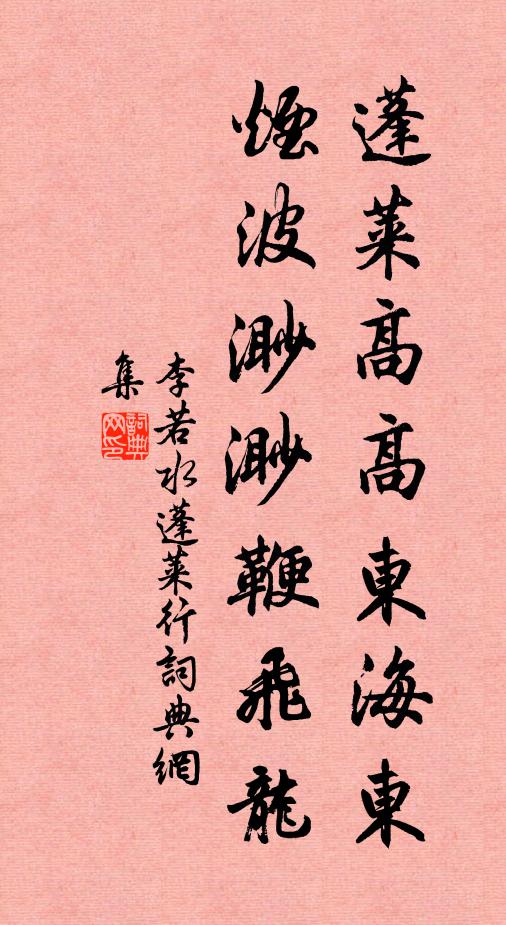 蓬莱高高東海東
煙波渺渺鞭飛龍
李若水蓬莱行詞典網
集
詞典网印